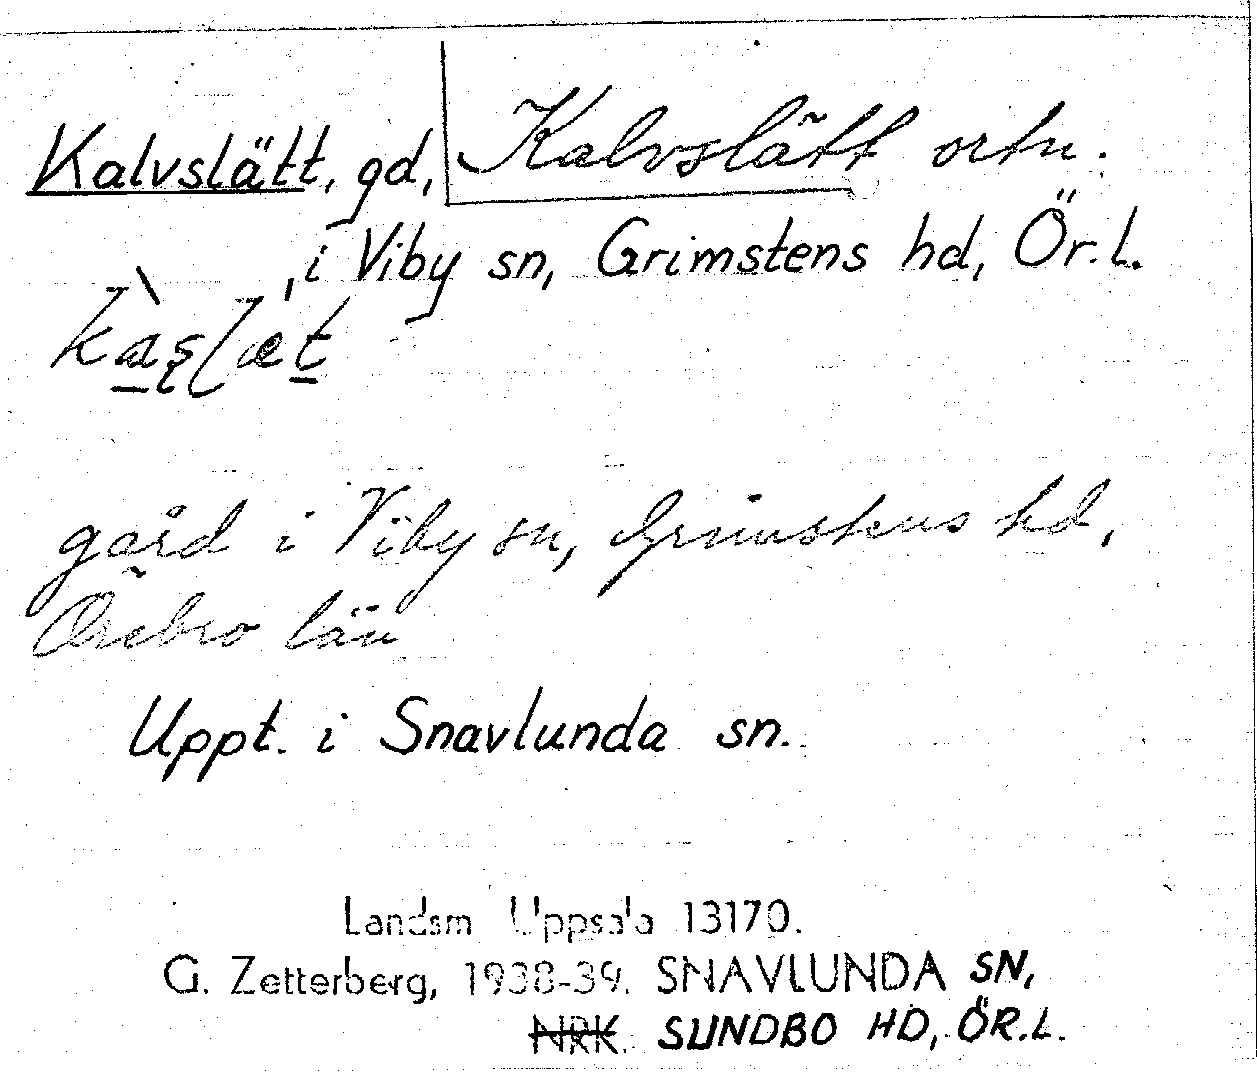 Kalvslätt, gd, Kalvslätt ortn.
i Viby sn, Grimstens hd, Ör.l.
gård i Viby sn, Grimstens hd,
Örebro län
Uppt. i Snavlunda sn.
Landsm Uppsala 13170.
G. Zetterberg, 1938-39. SNAVLUNDA SN,
NRK. SUNDBO HD, ÖR.L.